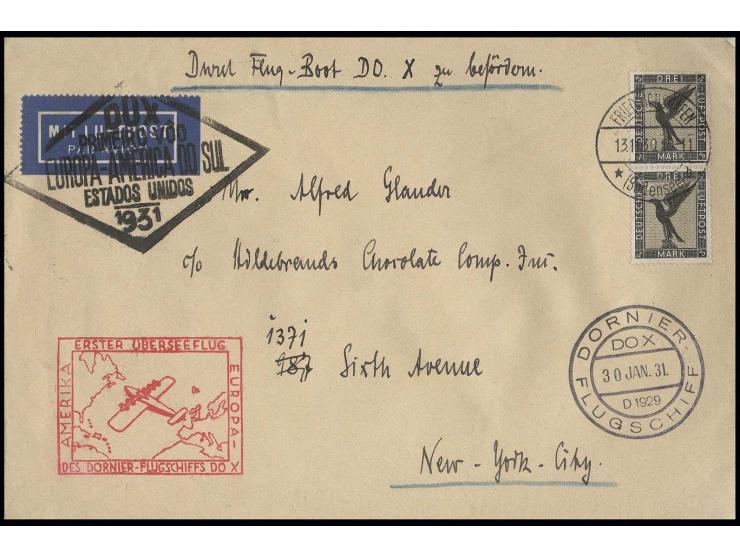 Durch Flug-Boot DO. X zu befördern.
MIT LUFTPOST
PAR AVION
DOX
PRIMEIRO VOO
EUROPA-AMERICA DO SUL
ESTADOS UNIDOS
1931
DREI
DEUTSCHE
LUFTPOST
MARK
DREI
DEUTSCHE
LUFTPOST
MARK
FRIEDRICHSHAFEN
(Bodensee) b
Mr. Alfred Glander
c/o Hildebrands Chocolate Comp. Inc.
1371
787 Sixth Avenue
New-York-City.
ERSTER ÜBERSEEFLUG
AMERIKA
EUROPA-
DES DORNIER-FLUGSCHIFFS DO X
DORNIER-
DOX
30 JAN. 31.
D 1929
FLUGSCHIFF